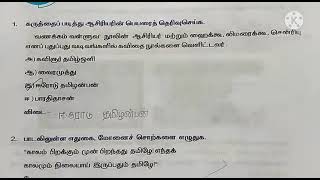 1. கருத்தைப் படித்து ஆசிரியரின் பெயரைத் தெரிவுசெய்க.
'வணக்கம் வள்ளுவ' நூலின் ஆசிரியர் மற்றும் ஹைக்கூ, லிமரைக்கூ, சென்ரியு
எனப் புதுப்புது வடிவங்களில் கவிதை நூல்களை வெளியிட்டவர்
அ) கவிஞர் தமிழ்ஒளி
ஆ) வைரமுத்து
இ) ஈரோடு தமிழன்பன்
ஈ) பாரதிதாசன்
விடை ஈரோடு தமிழன்பன்
2. பாடலிலுள்ள எதுகை, மோனைச் சொற்களை எழுதுக.
"காலம் பிறக்கும் முன் பிறந்தது தமிழே! எந்தக்
காலமும் நிலையாய் இருப்பதும் தமிழே!"